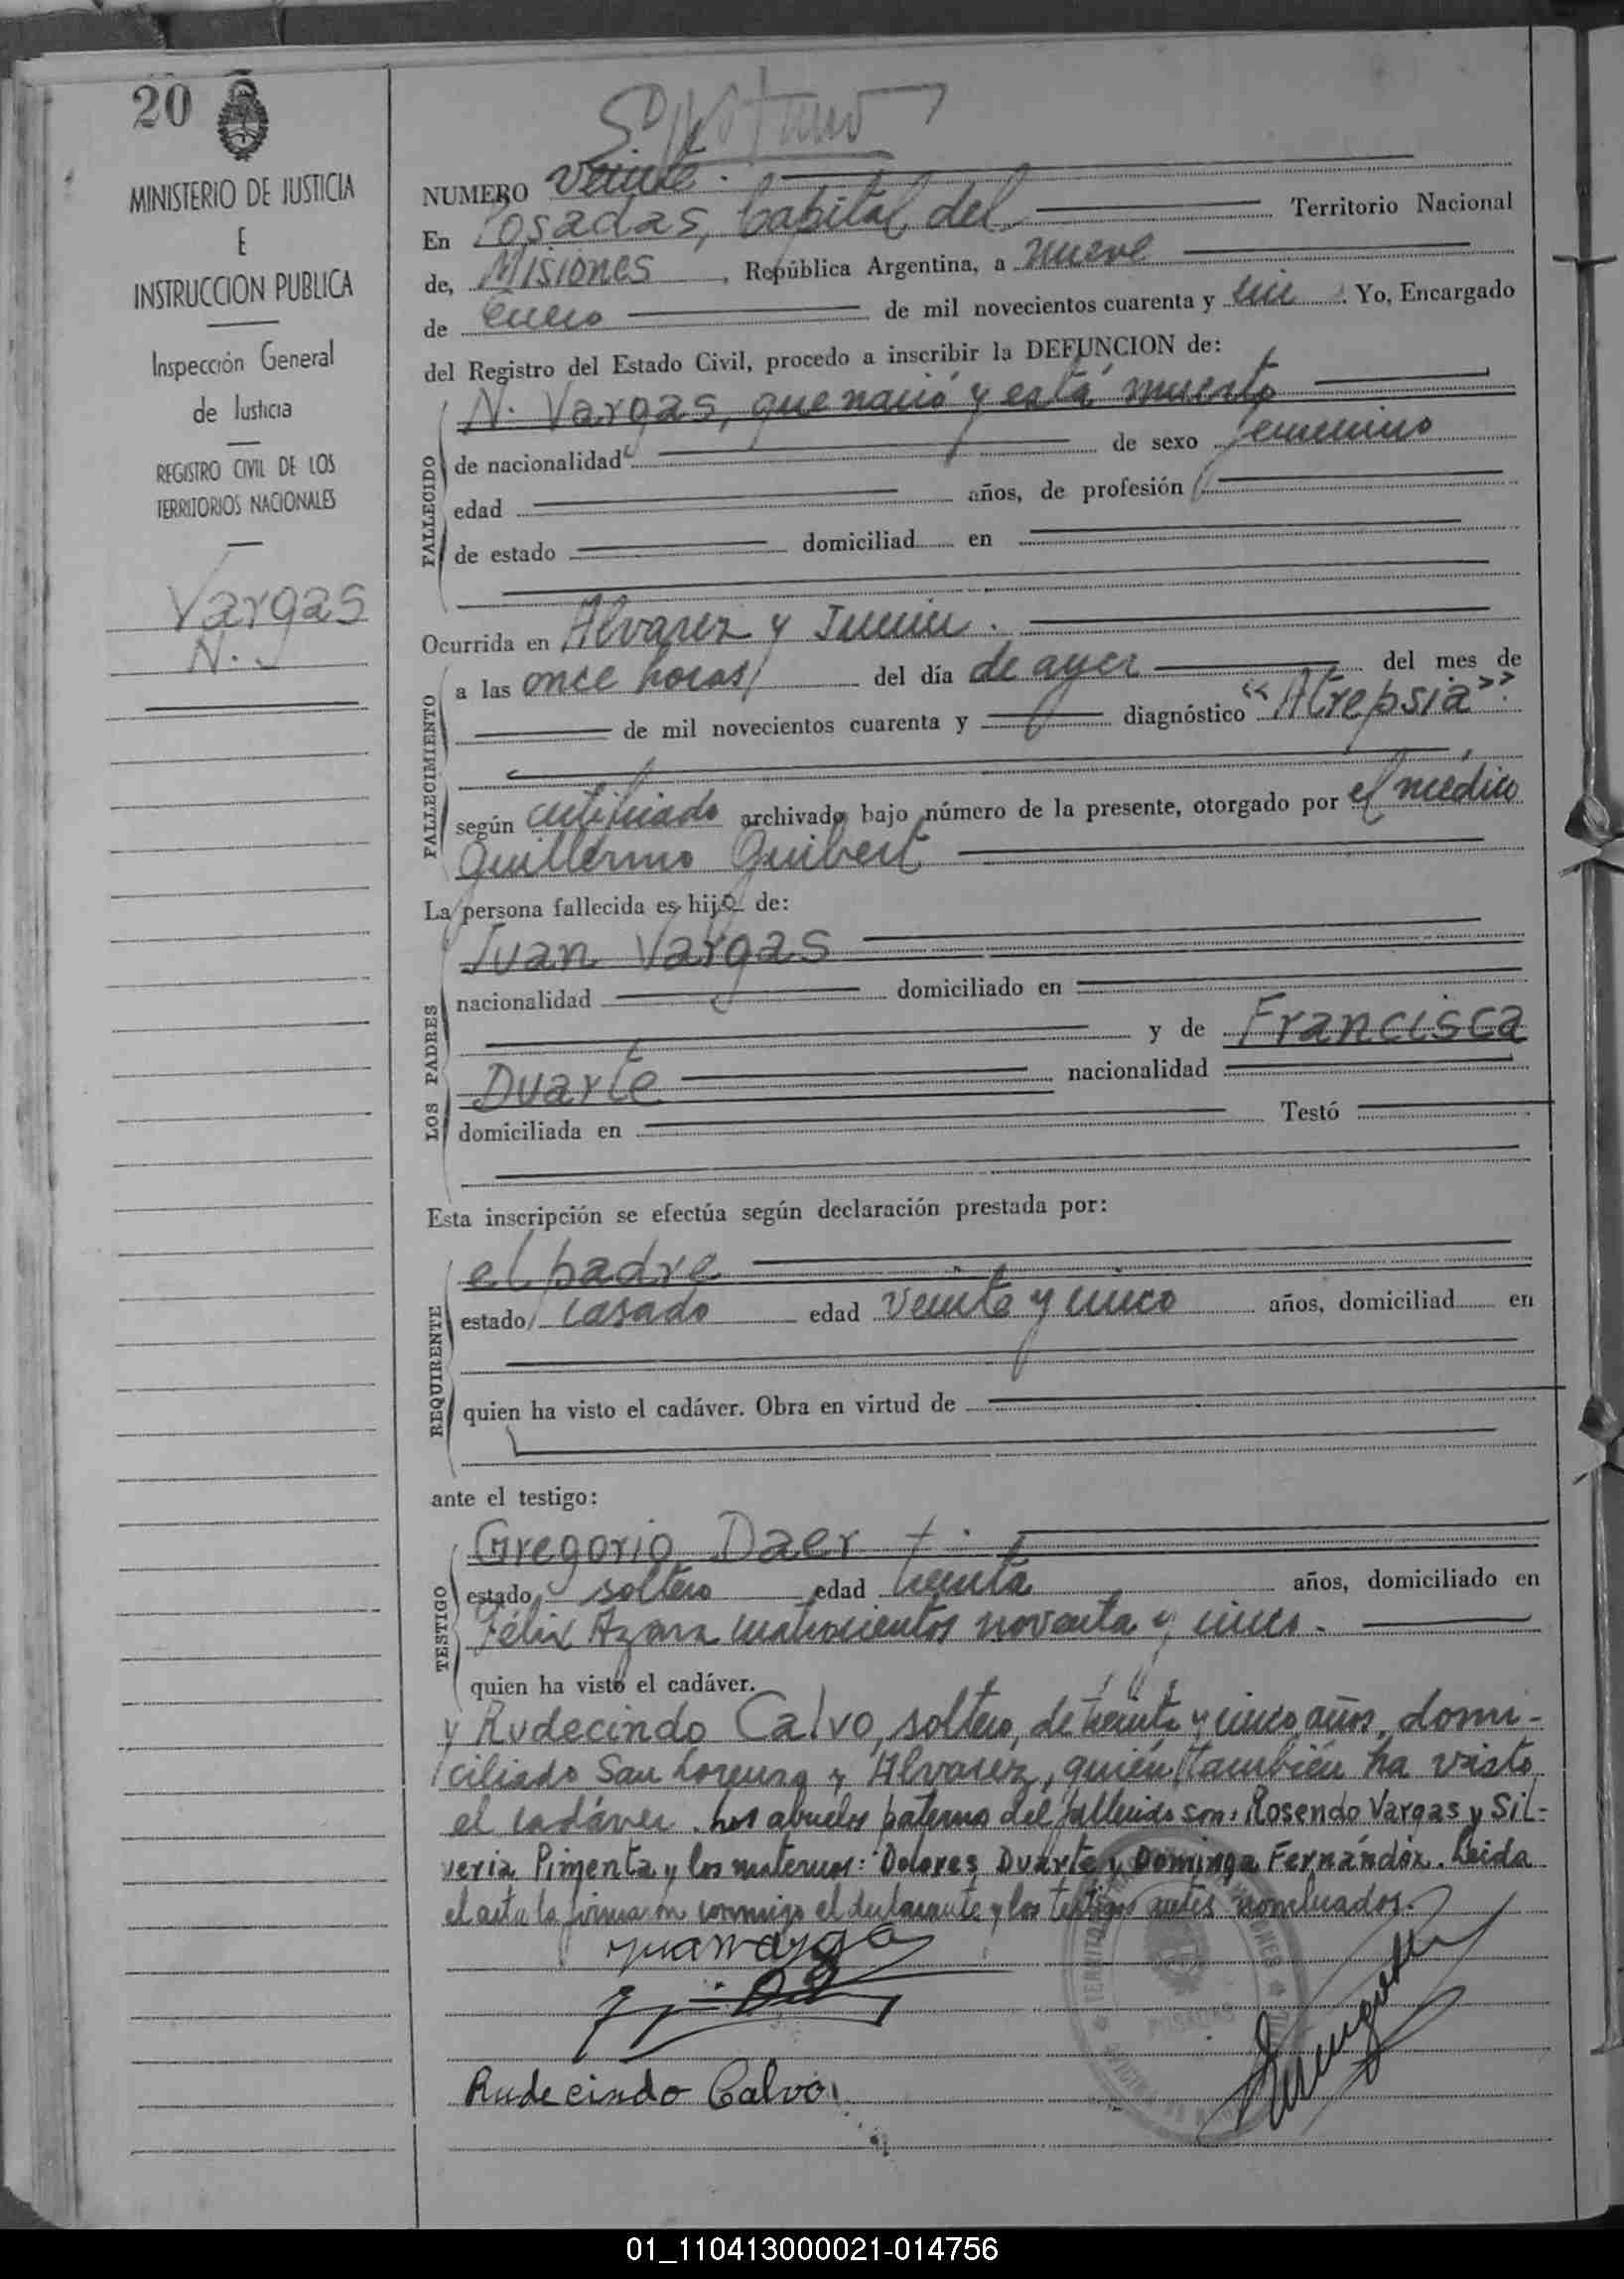 20
MINISTERIO DE JUSTICIA
E
INSTRUCCION PUBLICA
Inspección General
de Justicia
REGISTRO CIVIL DE LOS
TERRITORIOS NACIONALES
Vargas
N.
NUMERO veinte.
En Posadas, Capital del Territorio Nacional
de, Misiones, República Argentina, a nueve
de Enero de mil novecientos cuarenta y un. Yo, Encargado
del Registro del Estado Civil, procedo a inscribir la DEFUNCION de:
FALLECIDO
N. Vargas, que nació y está muerto
de nacionalidad de sexo femenino
edad años, de profesión
de estado domiciliad en
Ocurrida en Alvarez y Junin.
FALLECIMIENTO
a las once horas, del día de ayer del mes de
de mil novecientos cuarenta y diagnóstico "Atrepsia".
según certificado archivado bajo número de la presente, otorgado por el médico
Guillermo Guibert
La persona fallecida es hijo de:
LOS PADRES
Juan Vargas
nacionalidad domiciliado en
y de Francisca
Duarte nacionalidad
domiciliada en Testó
Esta inscripción se efectúa según declaración prestada por:
REQUIRENTE
el padre
estado casado edad veinte y cinco años, domiciliad en
quien ha visto el cadáver. Obra en virtud de
ante el testigo:
TESTIGO
Gregorio Daer
estado soltero edad treinta años, domiciliado en
Félix Azara cuatrocientos noventa y cinco.
quien ha visto el cadáver.
y Rudecindo Calvo, soltero, de treinta y cinco años, domi-
ciliado San Lorenzo y Alvarez, quién también ha visto
el cadáver. Los abuelos paternos del fallecido son: Rosendo Vargas y Sil-
veria Pimenta y los maternos: Dolores Duarte y Dominga Fernández. Leida
el acta la firmaron conmigo el declarante y los testigos antes nombrados.
Rudecindo Calvo
POSADAS
01_110413000021-014756